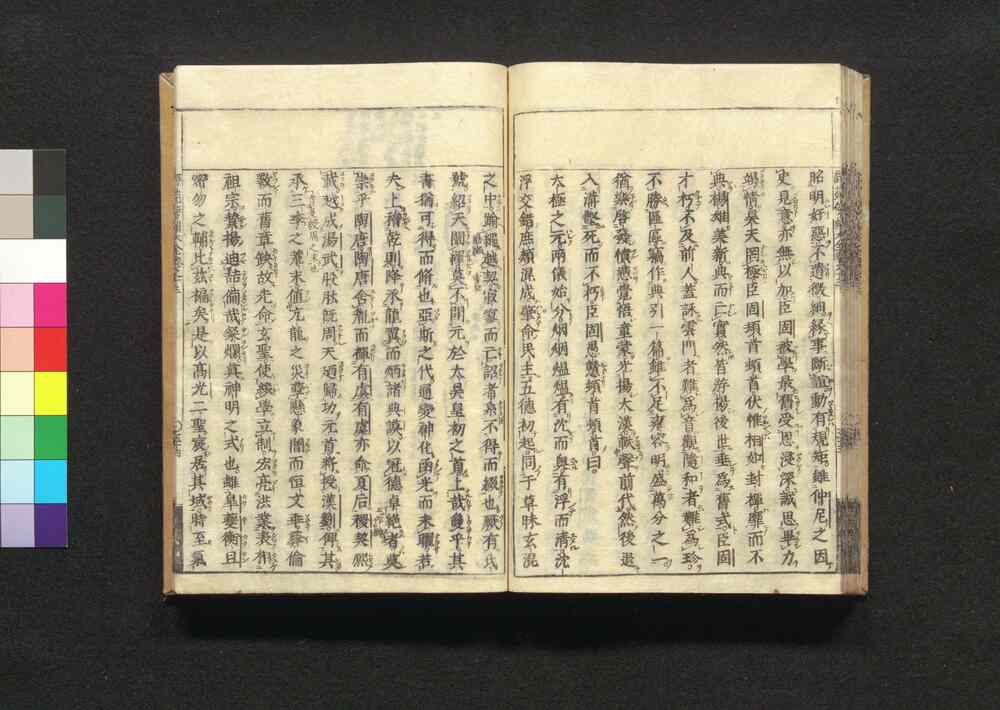 昭明好惡不遺微細緣事斷誼動有規矩雖仲尼之因
史見意亦無以加臣固被學最舊受恩浸深誠思畢力
竭情昊天罔極臣固頓首頓首伏惟相如封禪靡而不
典楊雄美新典而亡實然皆游揚後世垂爲舊式臣固
才朽不及前人蓋詠雲門者難爲音觀隨和者難爲珍
不勝區區竊作典引一篇雖不足雍容明盛萬分之一
猶樂啓發憤懣覺悟童蒙光揚大漢軼聲前代然後退
入溝壑死而不朽臣固愚戇頓首頓首曰
太極之元兩儀始分烟烟熅熅有沈而奧有浮而清沈
浮交錯庶類混成肇命民主五德初起同于草昧玄混
之中踰繩越契寂寥而亡詔者系不得而綴也厥有氏
號紹天闡繹莫不開元於太昊皇初之首上哉夐乎其
書猶可得而脩也亞斯之代通變神化函光而未曜若
夫上稽乾則降承龍翼而炳諸典謨以冠德卓絶者莫
崇乎陶唐陶唐舍胤而禪有虞有虞亦命夏后稷契熙
載越成湯武股肱既周天迺歸功元首將授漢劉俾其
承三季之荒末值亢龍之災孽懸象闇而恒文乖彝倫
斁而舊章缺故先命玄聖使綴學立制宏亮洪業表相
祖宗贊揚迪喆備哉粲爛眞神明之式也雖皐夔衡旦
密勿之輔比玆褊矣是以高光二聖宸居其域時至氣